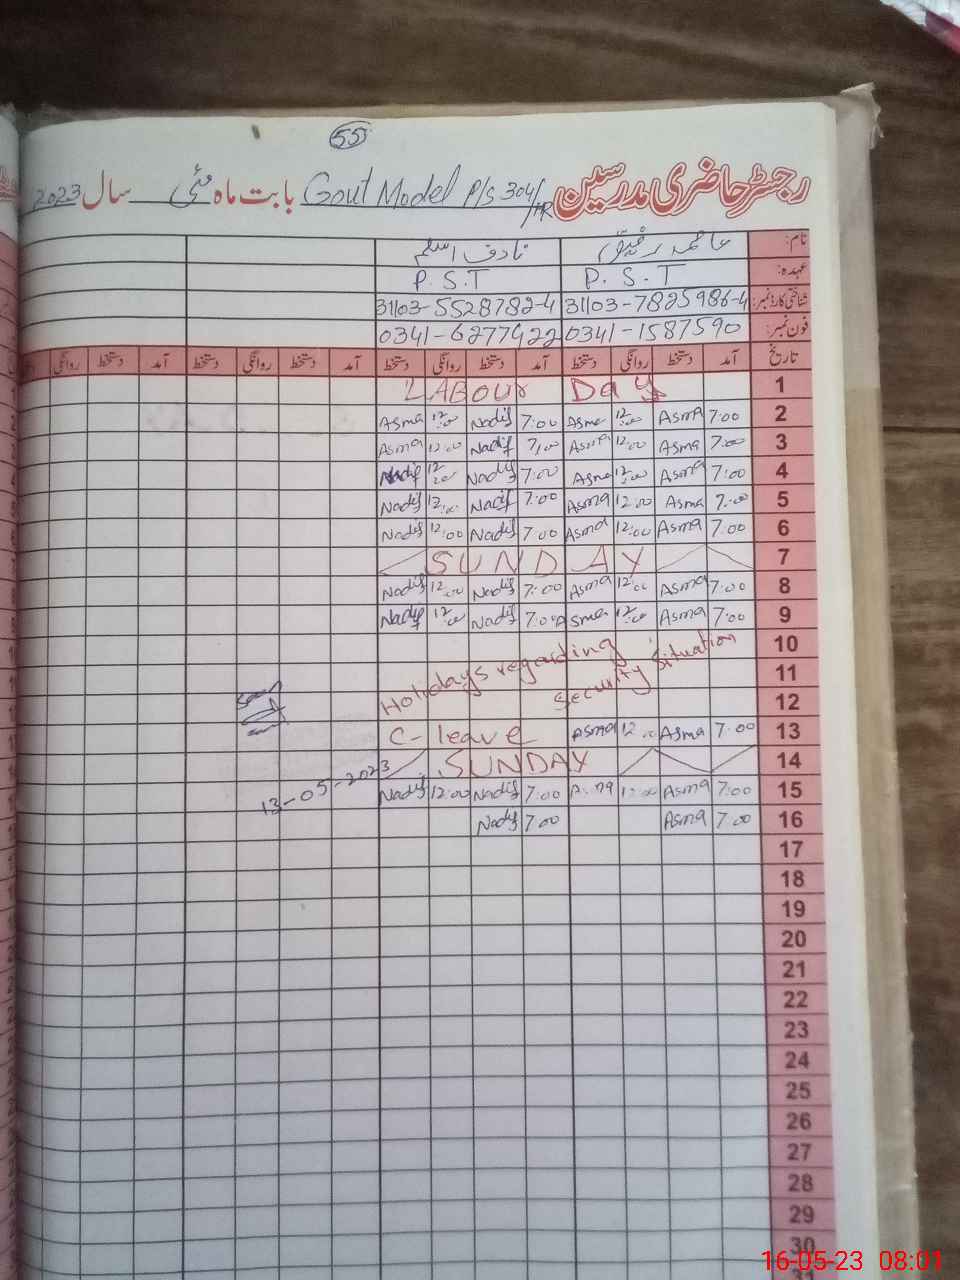 55
رجسٹر حاضری مدرسین Govt Model P/S 304/HR بابت ماہ مئی سال 2023
نام: عاصمہ رفیق نادف اسلم
عہدہ: P.S.T P.S.T
شناختی کارڈ نمبر: 31103-7825986-4 31103-5528782-4
فون نمبر: 0341-1587590 0341-6277422
تاریخ آمد دستخط روانگی دستخط آمد دستخط روانگی دستخط آمد دستخط روانگی دستخط آمد دستخط روانگی
1 LABOUR Day
2 7:00 Asma 12:00 Asma 7:00 Nadif 12:00 Asma
3 7:00 Asma 12:00 Asma 7:00 Nadif 12:00 Asma
4 7:00 Asma 12:00 Asma 7:00 Nadif 12:00 Nadif
5 7:00 Asma 12:00 Asma 7:00 Nadif 12:00 Nadif
6 7:00 Asma 12:00 Asma 7:00 Nadif 12:00 Nadif
7 SUNDAY
8 7:00 Asma 12:00 Asma 7:00 Nadif 12:00 Nadif
9 7:00 Asma 12:00 Asma 7:00 Nadif 12:00 Nadif
10
11 Holidays regarding
12 Security Situation
13 7:00 Asma 12:00 Asma C-leave
14 SUNDAY
13-05-2023
15 7:00 Asma 12:00 Asma 7:00 Nadif 12:00 Nadif
16 7:00 Asma 7:00 Nadif
17
18
19
20
21
22
23
24
25
26
27
28
29
30
31
16-05-23 08:01